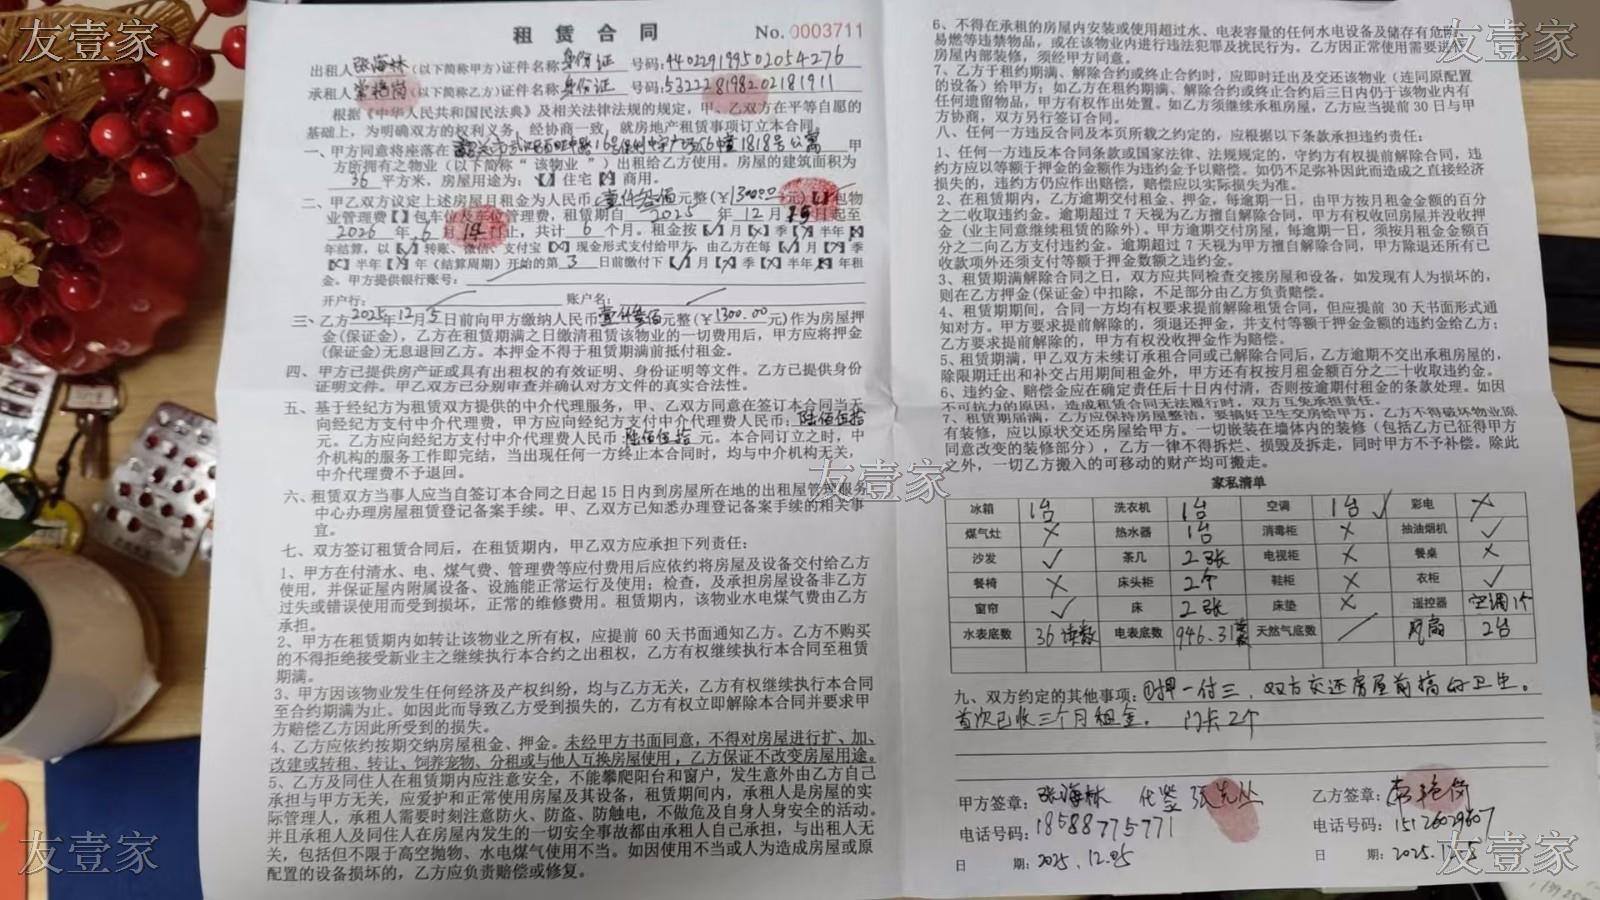 友壹家
友壹家
租 赁 合 同 No.0003711
出租人 张海林 (以下简称甲方)证件名称 身份证 号码:440229199502054276
承租人 (以下简称乙方)证件名称 身份证 号码:532228198202181911
根据《中华人民共和国民法典》及相关法律法规的规定，甲、乙双方在平等自愿的
基础上，为明确双方的权利义务，经协商一致，就房地产租赁事项订立本合同。
一、甲方同意将座落在 16号保利中宇广场6幢1818号公寓 甲
方所拥有之物业（以下简称“ 该物业 ”）出租给乙方使用。房屋的建筑面积为
36 平方米，房屋用途为：【 】住宅【 】商用。
二、甲乙双方议定上述房屋月租金为人民币 壹仟叁佰 元整(￥1300.00元)【 】包物
业管理费【 】包车位及车位管理费，租赁期自 2025 年 12 月 15 日起至
2026 年 6 月 14 日止，共计 6 个月。租金按【√】月【×】季【×】半年【×】
年结算，以【√】转账、微信、支付宝【×】现金形式支付给甲方，由乙方在每【√】月【×】季
【×】半年【×】年（结算周期）开始的第 3 日前缴付下【√】月【×】季【×】半年【×】年租
金。甲方提供银行账号：
开户行： 账户名：
三、乙方 2025 年 12 月 5 日前向甲方缴纳人民币 壹仟叁佰 元整(￥1300.00元)作为房屋押
金(保证金)，乙方在租赁期满之日缴清租赁该物业的一切费用后，甲方应将押金
(保证金)无息退回乙方。本押金不得于租赁期满前抵付租金。
四、甲方已提供房产证或具有出租权的有效证明、身份证明等文件。乙方已提供身份
证明文件。甲乙双方已分别审查并确认对方文件的真实合法性。
五、基于经纪方为租赁双方提供的中介代理服务，甲、乙双方同意在签订本合同当天
向经纪方支付中介代理费，甲方应向经纪方支付中介代理费人民币：陆佰伍拾
元。乙方应向经纪方支付中介代理费人民币：陆佰伍拾 元。本合同订立之时，中
介机构的服务工作即完结，当出现任何一方终止本合同时，均与中介机构无关，
中介代理费不予退回。
六、租赁双方当事人应当自签订本合同之日起 15 日内到房屋所在地的出租屋管理服务
中心办理房屋租赁登记备案手续。甲、乙双方已知悉办理登记备案手续的相关事
宜。
七、双方签订租赁合同后，在租赁期内，甲乙双方应承担下列责任：
1、甲方在付清水、电、煤气费、管理费等应付费用后应依约将房屋及设备交付给乙方
使用，并保证屋内附属设备、设施能正常运行及使用；检查，及承担房屋设备非乙方
过失或错误使用而受到损坏，正常的维修费用。租赁期内，该物业水电煤气费由乙方
承担。
2、甲方在租赁期内如转让该物业之所有权，应提前 60 天书面通知乙方。乙方不购买
的不得拒绝接受新业主之继续执行本合约之出租权，乙方有权继续执行本合同至租赁
期满。
3、甲方因该物业发生任何经济及产权纠纷，均与乙方无关，乙方有权继续执行本合同
至合约期满为止。如因此而导致乙方受到损失的，乙方有权立即解除本合同并要求甲
方赔偿乙方因此所受到的损失。
4、乙方应依约按期交纳房屋租金、押金。未经甲方书面同意，不得对房屋进行扩、加、
改建或转租、转让、饲养宠物、分租或与他人互换房屋使用，乙方保证不改变房屋用途。
5、乙方及同住人在租赁期内应注意安全，不能攀爬阳台和窗户，发生意外由乙方自己
承担与甲方无关，应爱护和正常使用房屋及其设备，租赁期间内，承租人是房屋的实
际管理人，承租人需要时刻注意防火、防盗、防触电，不做危及自身人身安全的活动。
并且承租人及同住人在房屋内发生的一切安全事故都由承租人自己承担，与出租人无
关，包括但不限于高空抛物、水电煤气使用不当。如因使用不当或人为造成房屋或原
配置的设备损坏的，乙方应负责赔偿或修复。
6、不得在承租的房屋内安装或使用超过水、电表容量的任何水电设备及储存有危险
易燃等违禁物品，或在该物业内进行违法犯罪及扰民行为。乙方因正常使用需要进
房屋内部装修，须经甲方同意。
7、乙方于租约期满、解除合约或终止合约时，应即时迁出及交还该物业（连同原配置
的设备）给甲方；如乙方在租约期满、解除合约或终止合约后三日内仍于该物业内有
任何遗留物品，甲方有权作出处置。如乙方须继续承租房屋，乙方应当提前 30 日与甲
方协商，双方另行签订合同。
八、任何一方违反合同及本页所载之约定的，应根据以下条款承担违约责任：
1、任何一方违反本合同条款或国家法律、法规规定的，守约方有权提前解除合同，违
约方应以等额于押金的金额作为违约金予以赔偿。如仍不足弥补因此而造成之直接经济
损失的，违约方仍应作出赔偿，赔偿应以实际损失为准。
2、在租赁期内，乙方逾期交付租金、押金，每逾期一日，由甲方按月租金金额的百分
之二收取违约金。逾期超过 7 天视为乙方擅自解除合同，甲方有权收回房屋并没收押
金（业主同意继续租赁的除外）。甲方逾期交付房屋，每逾期一日，须按月租金金额百
分之二向乙方支付违约金。逾期超过 7 天视为甲方擅自解除合同，甲方除退还所有已
收款项外还须支付等额于押金数额之违约金。
3、租赁期满解除合同之日，双方应共同检查交接房屋和设备，如发现有人为损坏的，
则在乙方押金(保证金)中扣除，不足部分由乙方负责赔偿。
4、租赁期期间，合同一方均有权要求提前解除租赁合同，但应提前 30天书面形式通
知对方。甲方要求提前解除的，须退还押金，并支付等额于押金金额的违约金给乙方；
乙方要求提前解除的，甲方有权没收押金作为赔偿。
5、租赁期满，甲乙双方未续订承租合同或已解除合同后，乙方逾期不交出承租房屋的，
除限期迁出和补交占用期间租金外，甲方还有权按月租金额百分之二十收取违约金。
6、违约金、赔偿金应在确定责任后十日内付清，否则按逾期付租金的条款处理。如因
不可抗力的原因，造成租赁合同无法履行时，双方互免承担责任。
7、租赁期届满，乙方应保持房屋整洁，要搞好卫生交房给甲方，乙方不得破坏物业原
有装修，应以原状交还房屋给甲方。一切嵌装在墙体内的装修（包括乙方已征得甲方
同意改变的装修部分），乙方一律不得拆烂、损毁及拆走，同时甲方不予补偿。除此
之外，一切乙方搬入的可移动的财产均可搬走。
友壹家
家私清单
冰箱 1台 洗衣机 1台 空调 1台 √ 彩电 ×
煤气灶 × 热水器 1台 消毒柜 × 抽油烟机 √
沙发 √ 茶几 2张 电视柜 × 餐桌 ×
餐椅 × 床头柜 2个 鞋柜 × 衣柜 √
窗帘 √ 床 2张 床垫 × 遥控器 空调1个
水表底数 36 电表底数 946.31 天然气底数 风扇 2台
九、双方约定的其他事项：①押一付三，双方交还房屋前搞好卫生。
首次已收三个月租金。 门卡2个
甲方签章：张海林 代签 张
电话号码：18588775771
日 期：2025.12.05
乙方签章：
电话号码：15126029607
日 期：2025.12.5
友壹家
友壹家